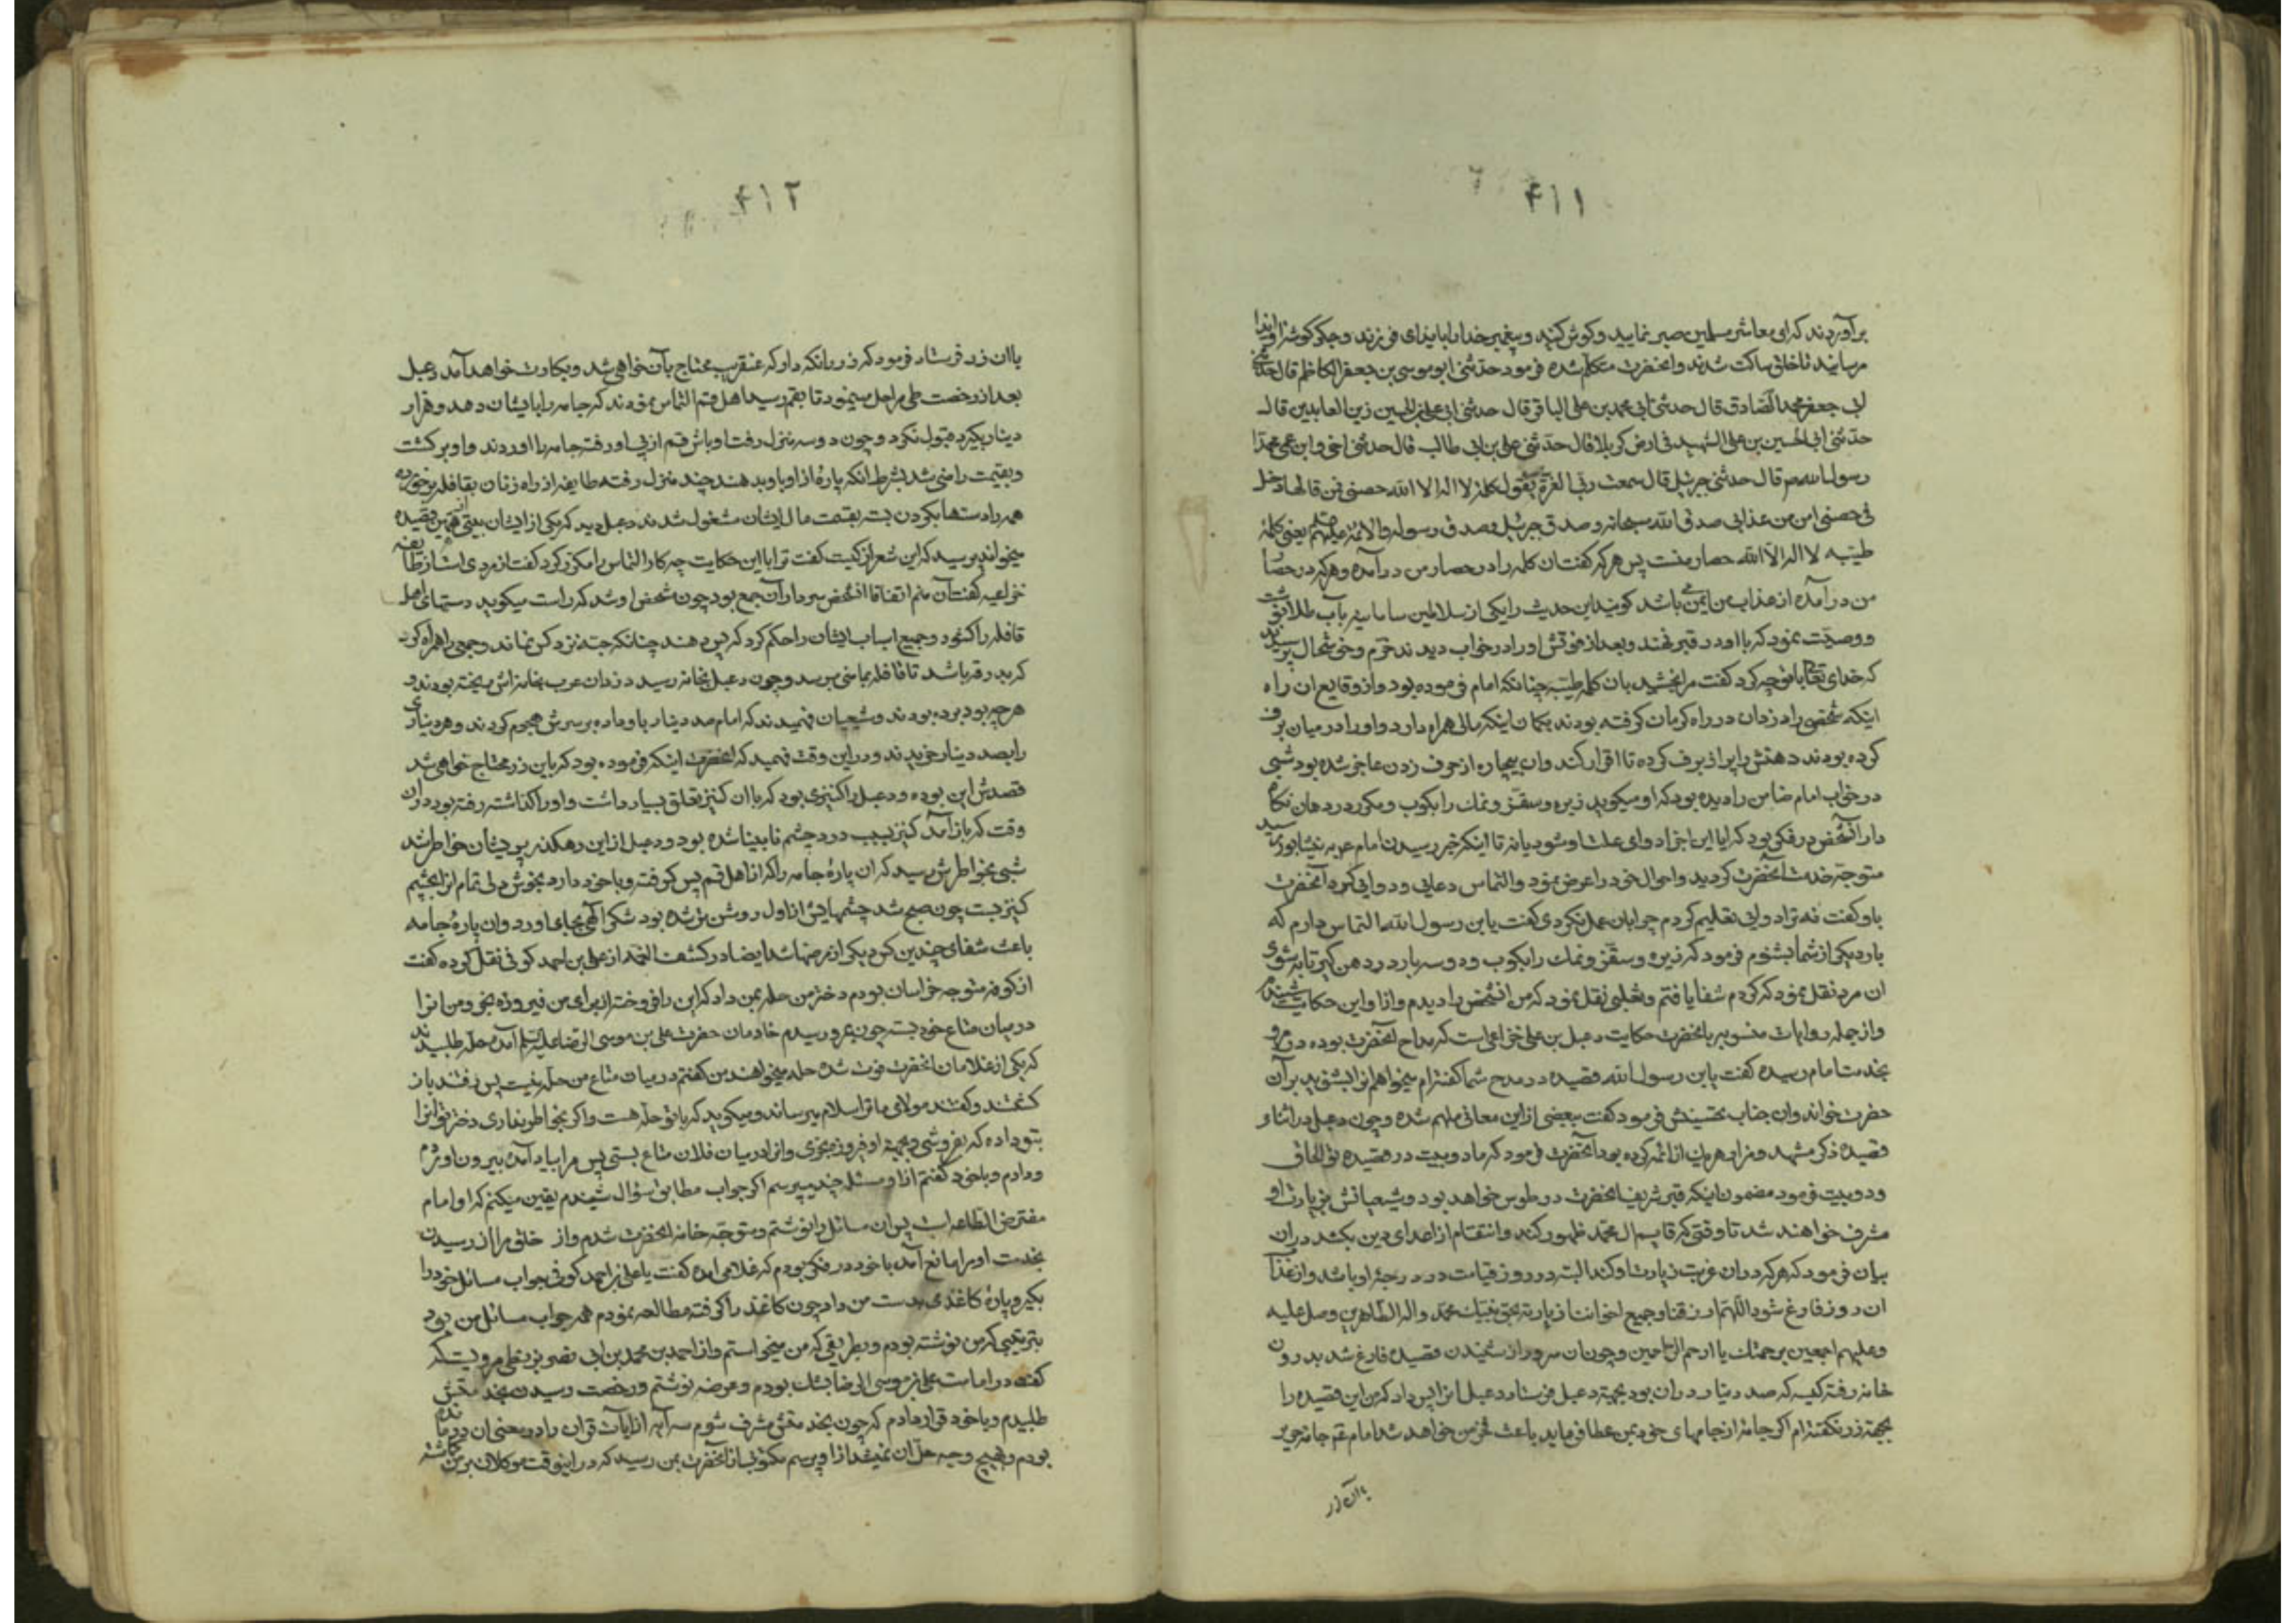 ۴۱۱
برآوردند که ای معاشر مسلمین صبر نمایید و گوش کنید و پیغمبر خدا را بایذای فرزند و جگرگوشه او ایذا
مرسانید تا خلق ساکت شدند و انحضرت متکلم شده فرمود حدثنی ابو موسی بن جعفر الکاظم قال حدثنی
ابی جعفر محمد الصادق قال حدثنی ابی محمد بن علی الباقر قال حدثنی ابی علی بن الحسین زین العابدین قال
حدثنی ابی الحسین بن علی الشهید فی ارض کربلا قال حدثنی علی بن ابی طالب قال حدثنی اخی و ابن عمی محمد
رسول الله ص قال حدثنی جبرئیل قال سمعت رب العزة یقول کلمة لا اله الا الله حصنی فمن قالها دخل
فی حصنی امن من عذابی صدق الله سبحانه و صدق جبرئیل و صدق رسوله والائمه علیهم یعنی کلمهٔ
طیبه لا اله الا الله حصار منست پس هر که گفت ان کلمه را در حصار من درآمده و هر که در حصا
من درآمده از عذاب من ایمن باشد گویند این حدیث را یکی از سلاطین سامانیه بآب طلا نوشت
و وصیّت نمود که با او در قبر نهند و بعد از فوتش او را در خواب دیدند خرّم و خوشحال پرسیدند
که خدای تعالی با تو چه کرد گفت مرا بخشید بان کلمه طیبه چنانکه امام فرموده بود و از وقایع ان راه
اینکه شخصی را دزدان در راه کرمان گرفته بودند بگمان اینکه مالی همراه دارد و او را در میان برف
کرده بودند دهنش را پر از برف کرده تا اقرار کند و ان بیچاره از حرف زدن عاجز شده بود شبی
در خواب امام ضامن را دیده بود که او میگوید زیره و سعتر و نمک را بکوب و مکرر در دهان نگاه
دار آنشخص در فکر بود که ایا این اجزا دوای علت او شود یا نه تا اینکه خبر رسیدن امام به نیشابور رسید
متوجّه خدمت آنحضرت گردید و احوال خود را عرض نمود و التماس دعایی و دوایی کرد آنحضرت
باو گفت نه ترا دوایی تعلیم کردم چرا بان عمل نکردی گفت یابن رسول الله التماس دارم که
بار دیگر از شما بشنوم فرمود که زیره و سعتر و نمک را بکوب و دو سه بار در دهن گیر تا به شوی
ان مرد نقل نمود که کردم شفا یافتم و ثعلبی نقل نمود که من انشخص را دیدم و از او این حکایت شنیدم
و از جمله روایات منسوبه بانحضرت حکایت دعبل بن علی خزاعی است که مداح آنحضرت بوده در مرو
بخدمت امام رسیده گفت یابن رسول الله قصیده در مدح شما گفته‌ام میخواهم انرا بشنوید بر آن
حضرت خواند و ان جناب تحسینش فرمود گفت بعضی از این معانی ملهم شده و چون دعبل در اثناء
قصیده ذکر مشهد و مزار هر یک از ائمه کرده بود آنحضرت فرمود که ما دو بیت در قصیده تو الحاق
و دو بیت فرمود مضمون اینکه قبر شریف انحضرت در طوس خواهد بود و شیعیانش بزیارت او
مشرف خواهند شد تا وقتی که قایم ال محمد ظهور کند و انتقام از اعدای دین بکشد در ان
بیان فرمود که هر که در ان غربت زیارت او کند البته در روز قیامت در درجهٔ او باشد و از عذاب
ان روز فارغ شود اللهم ارزقنا و جمیع اخواننا زیارته بحق نبیک محمد و اله الطاهرین و صل علیه
و علیهم اجمعین برحمتک یا ارحم الراحمین و چون ان سرور از شنیدن قصیده فارغ شد بدرون
خانه رفته کیسه که صد دینار در ان بود بجهة دعبل فرستاد دعبل انرا پس داد که من این قصیده را
بجهة زر نگفته‌ام اگر جامهٔ از جامهای خود بمن عطا فرماید باعث فخر من خواهد شد امام جامه
بان زر
۴۱۲
باان زر فرستاد فرمود که زر را نگه دار که عنقریب محتاج بآن خواهی شد و بکارت خواهد آمد دعبل
بعد از رخصت طی مراحل مینمود تا بقم رسید اهل قم التماس نمودند که جامه را بایشان دهد و هزار
دینار بگیرد قبول نکرد و چون دو سه منزل رفت اوباش قم از پی او رفته جامه را اوردند و او برگشت
و بقیمت راضی شد بشرط انکه پارهٔ از او باو بدهند چند منزل رفته طایفه از راه زنان بقافله برخورده
همه را دستها بگردن بسته بقسمت مال ایشان مشغول شدند دعبل دید که یکی از ایشان بیتی از همین قصیده
میخواند پرسید که این شعر از کیست گفت ترا با این حکایت چه کار التماس را مکرر کرد گفت از مردی است از طایفه
خزاعیه گفت آن منم اتفاقا انشخص سردار آن جمع بود چون مشخص او شد که راست میگوید دستهای اهل
قافله را گشود و جمیع اسباب ایشان را حکم کرد که پس دهند چنانکه حبّه نزد کس نماند و جمعی را همراه کرد
که بدرقه باشد تا قافله بمامنی برسد و چون دعبل بخانه رسید دزدان عرب بخانه‌اش ریخته بودند و
هر چه بود برده بودند و شیعیان فهمیدند که امام صد دینار باو داده بر سرش هجوم کردند و هر دیناری
را بصد دینار خریدند و در این وقت فهمید که انحضرت اینکه فرموده بود که باین زر محتاج خواهی شد
قصدش این بوده و دعبل را کنیزی بود که باان کنیز تعلق بسیار داشت و او را گذاشته رفته بود در ان
وقت که باز آمد کنیز بسبب درد چشم نابینا شده بود و دعبل از این رهگذر پریشان خواطر شد
شبی بخواطرش رسید که ان پارهٔ جامه را که از اهل قم پس گرفته و با خود دارد بچشم
کنیز بست چون صبح شد چشمهایش از اول روشن تر شده بود شکر الهی بجای اورد و ان پارهٔ جامه
باعث شفای چندین کس دیگر از مرضها شد ایضا در کشف الغمه از علی بن احمد کوفی نقل کرده گفت
از کوفه متوجه خراسان بودم دختر من حله بمن داد که این را فروخته از برای من فیروزه بخر و من انرا
در میان متاع خود بسته چون بمرو رسیدم خادمان حضرت علی بن موسی الرضا علیه السلم آمده حلّه طلبیدند
که یکی از غلامان انحضرت فوت شده حله میخواهند من گفتم در میان متاع من حلّه نیست پس رفتند باز
گشتند و گفتند مولای ما ترا سلام میرساند و میگوید که با تو حلّه هست و اگر بخواطر نداری دختر تو انرا
بتو داده که بفروشی و بجهة او فیروزه بخری و انرا در میان فلان متاع بستی پس مرا بیاد آمد بیرون اوردم
و دادم و با خود گفتم از او مسئله چند بپرسم اگر جواب مطابق سؤال شنیدم یقین میکنم که او امام
مفترض الطاعه است پس ان مسائل را نوشتم و متوجّه خانه انحضرت شدم و از خلق مرا از رسیدن
بخدمت او مرا مانع آمد با خود در فکر بودم که غلامی امده گفت یا علی بن احمد کوفی جواب مسائل خود را
بگیر و پارهٔ کاغذی بدست من داد چون کاغذ را گرفته مطالعه نمودم همه جواب مسائل من بود
بترتیبی که من نوشته بودم و بطریقی که من میخواستم و از احمد بن محمد بن ابی نصر بزنطی مرویست که
گفت در امامت علی بن موسی الرضا بشک بودم و عرضه نوشتم و رخصت رسیدن بخدمتش
طلبیدم و با خود قرار دادم که چون بخدمتش مشرف شوم سه آیه از ایات قران را در معنی ان درمانده
بودم و بهیچ وجه حلّ ان نمیشد از او بپرسم مکتوب از آنحضرت بمن رسید که در اینوقت موکلان بر من گماشته